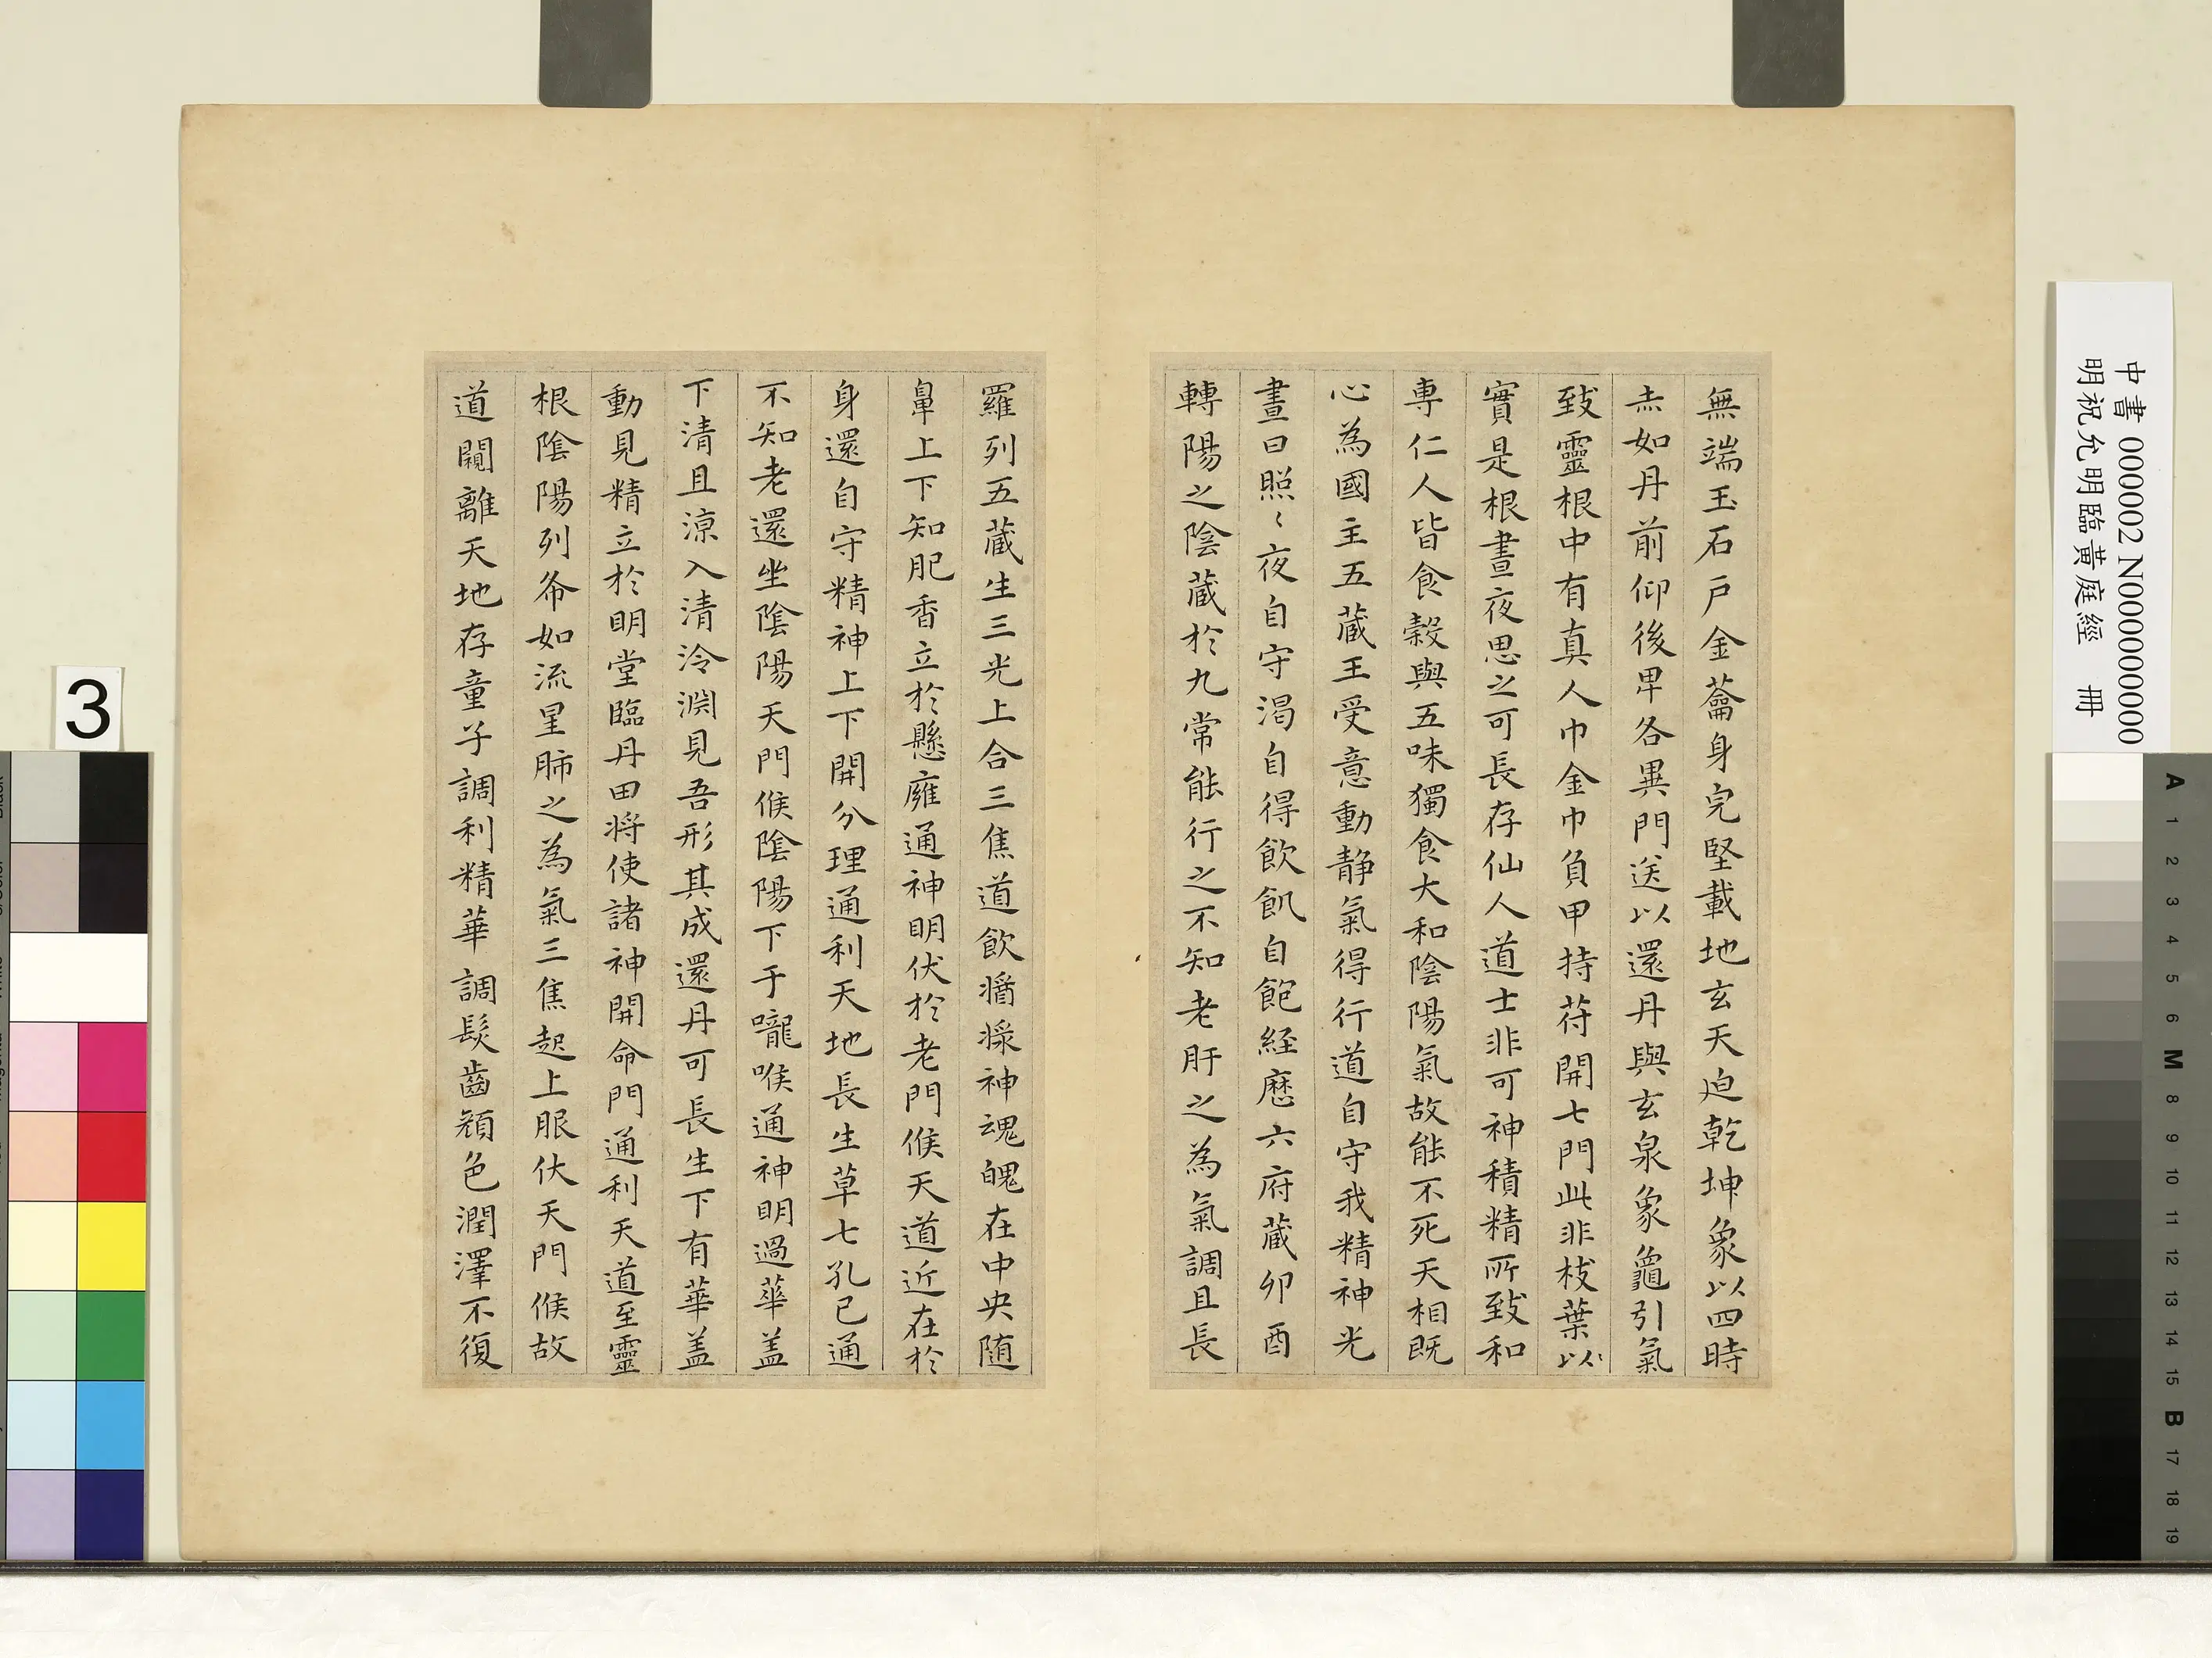 無端玉石戶金蘥身完堅載地玄天迫乾坤象以四時
赤如丹前仰後卑各異門送以還丹與玄泉象龜引氣
致靈根中有真人巾金巾負甲持苻開七門此非枝葉
實是根晝夜思之可長存仙人道士非可神積精所致和
專仁人皆食穀與五味獨食大和陰陽氣故能不死天相既
心為國主五藏王受意動静氣得行道自守我精神光
晝日照〻夜自守渴自得飲飢自飽経歷六府藏卯酉
轉陽之陰藏於九常能行之不知老肝之為氣調且長
羅列五藏生三光上合三焦道飲漿神魂魄在中央随
鼻上下知肥香立於懸廱通神明伏於老門候天道近在於
身還自守精神上下開分理通利天地長生草七孔已通
不知老還坐陰陽天門候陰陽下于嚨喉通神明過華盖
下清且涼入清泠淵見吾形其成還丹可長生下有華盖
動見精立於明堂臨丹田将使諸神開命門通利天道至靈
根陰陽列布如流星肺之為氣三焦起上服伏天門候故
道闚離天地存童子調利精華調髮齒顔色潤澤不復
中書 000002 N000000000
明祝允明臨黃庭經 冊
3
A 1 2 3 4 5 6 M 8 9 10 11 12 13 14 15 B 17 18 19